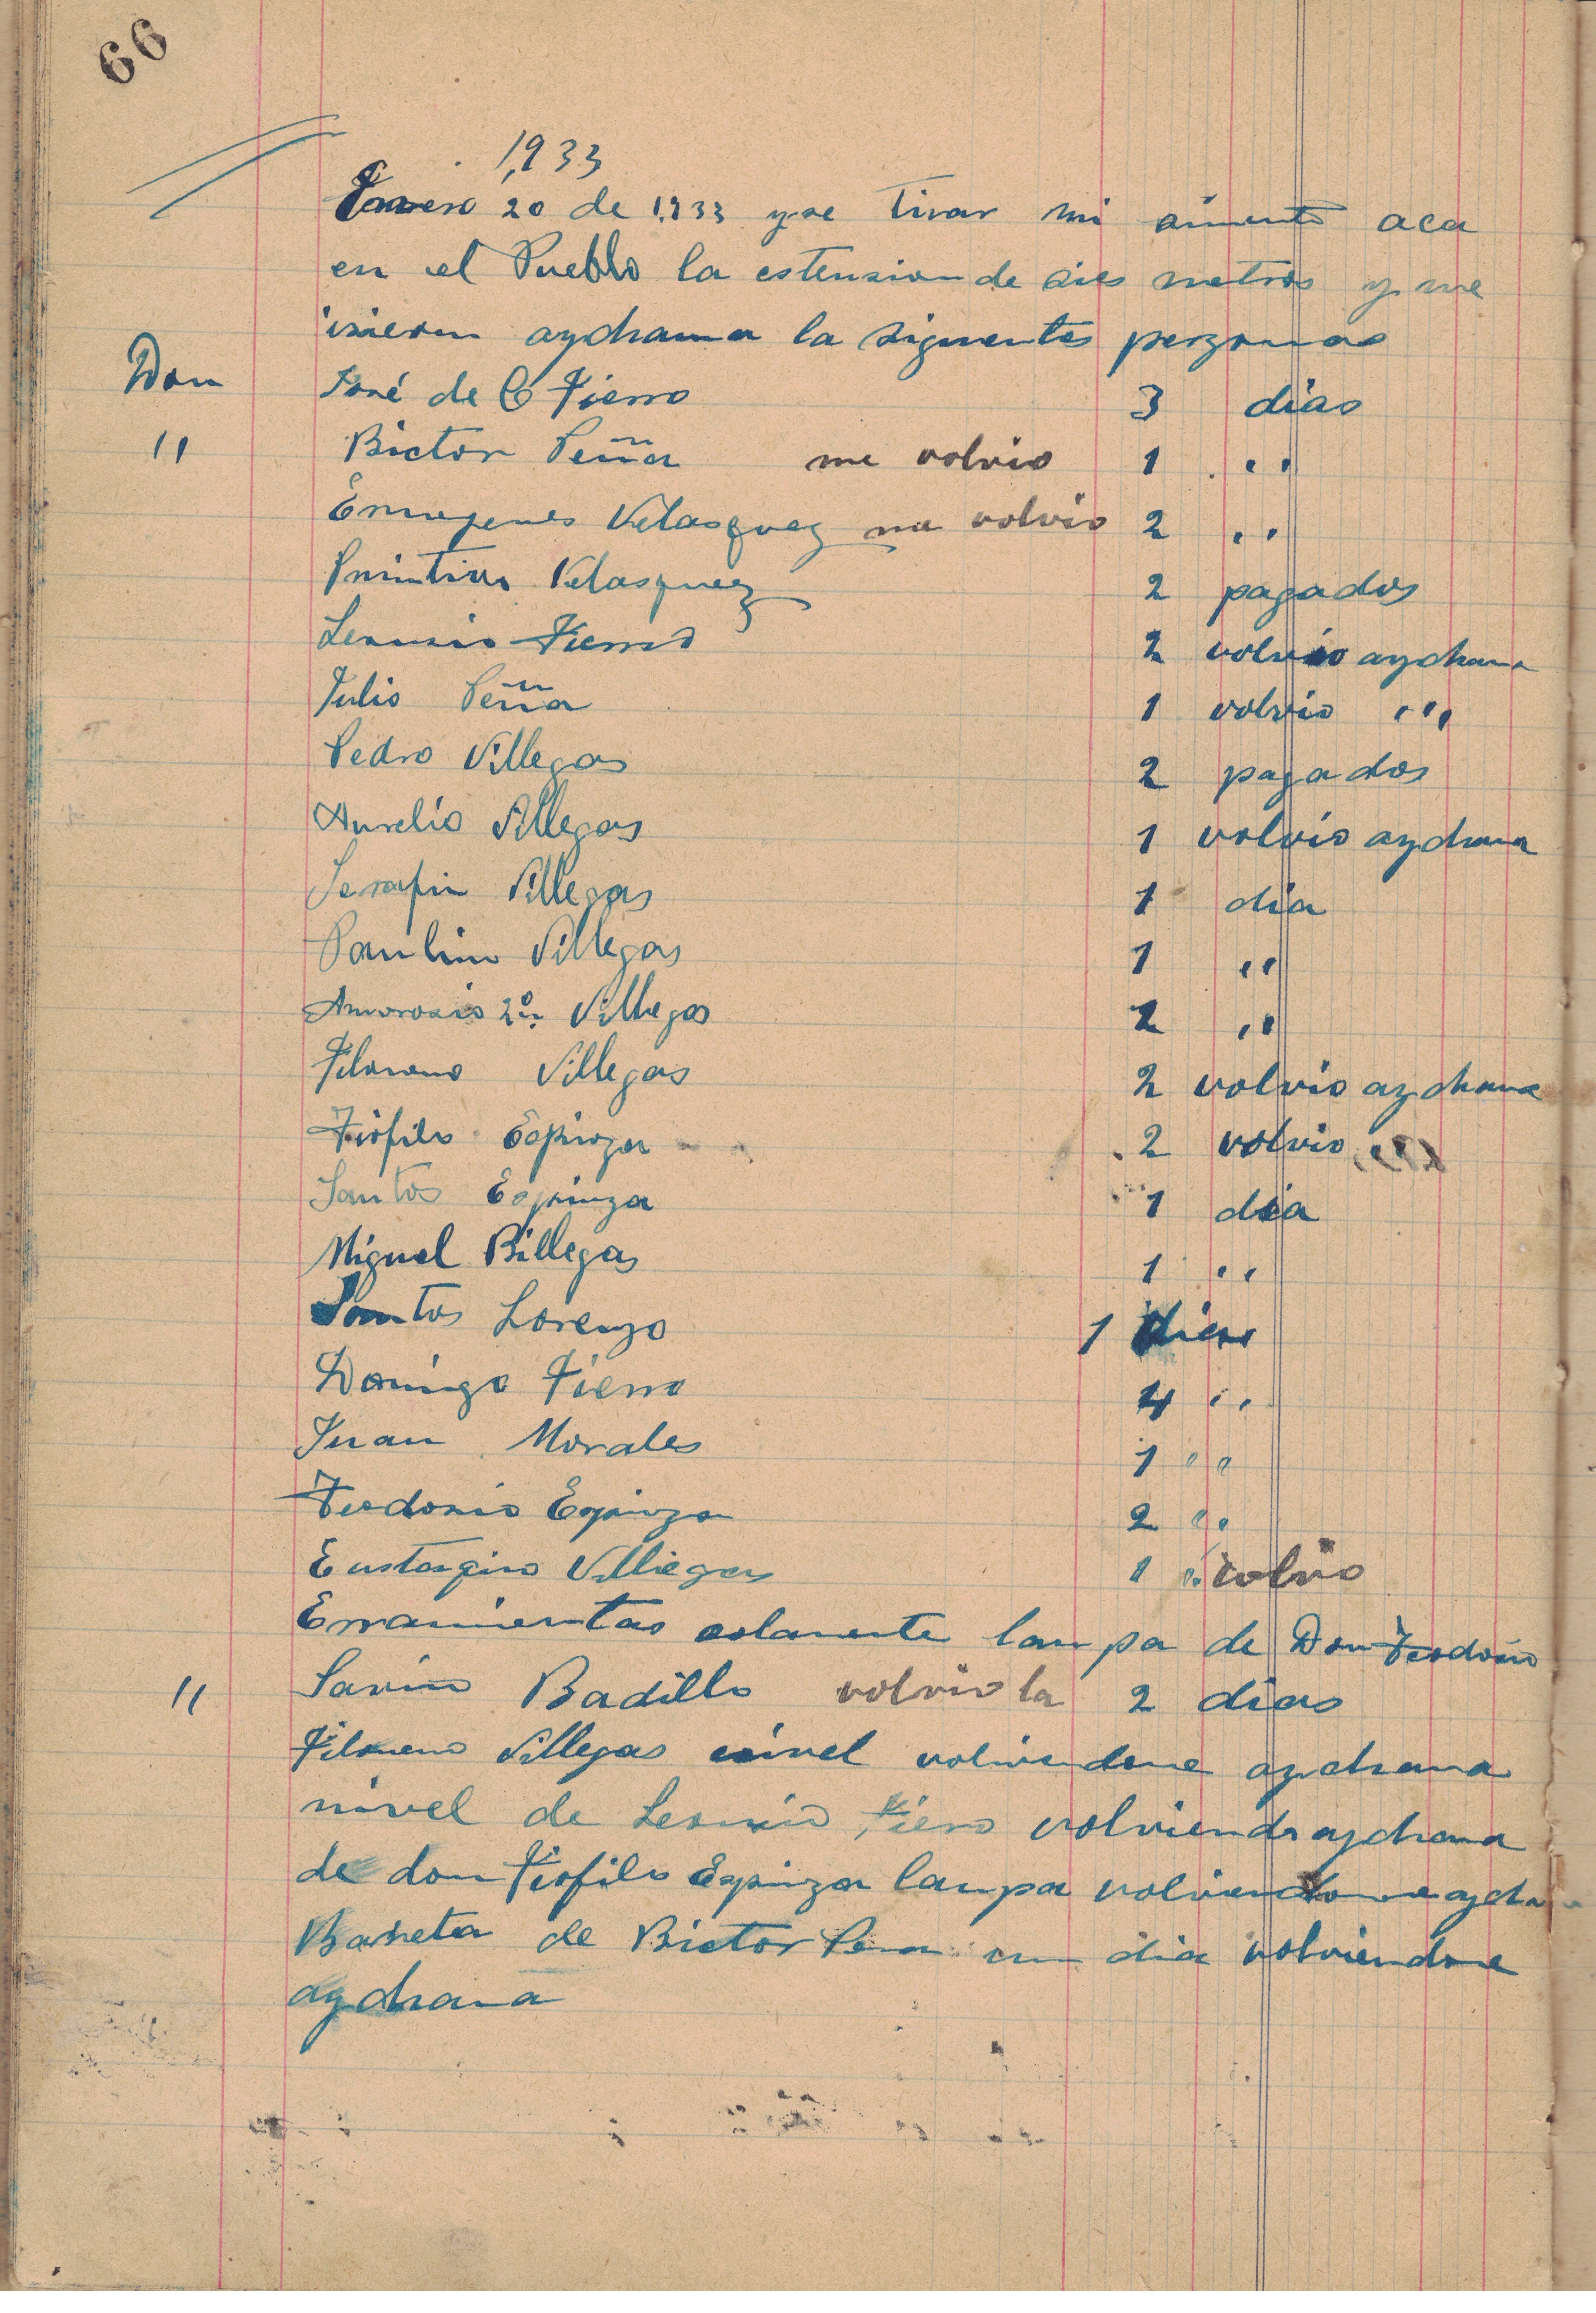 66
1,933
Enero 20 de 1,933 yse tirar mi simento aca
en el Pueblo la estension de dies metros y me
isieron aychama la siguentes perzonas
Don José de C Fierro 3 dias
" Bictor Peña me volvio 1 ,,
Ermogenes Velasquez me volvio 2 ,,
Primtivo Velasquez 2 pagados
Leoncio Fierro 2 volvio aychama
Julio Peña 1 volvio ,,,
Pedro Villegas 2 pagados
Aurelio Villegas 1 volvio aychama
Serafin Villegas 1 dia
Paulino Villegas 1 ,,
Amrosio 2º Villegas 2 ,,
Filomeno Villegas 2 volvio aychama
Tiofilo Espinoza 2 volvio
Santos Espinza 1 dia
Miguel Billegas 1 ,,
Santos Lorenzo 1 dias
Domingo Fierro 4 ,,
Juan Morales 1 ,,
Teodosio Espinza 2 ,,
Eustaqino Villiegas 1 ,, volvio
Erramientas solamente lampa de Don Teodosio
" Savino Badillo volvio la 2 dias
Filomeno Villegas nivel volviendome aychama
nivel de Leoncio Fiero volviendo aychama
de don Tiofilo Espinza lampa volviendome aycha
Barreta de Bictor Pena un dia volviendome
aychama